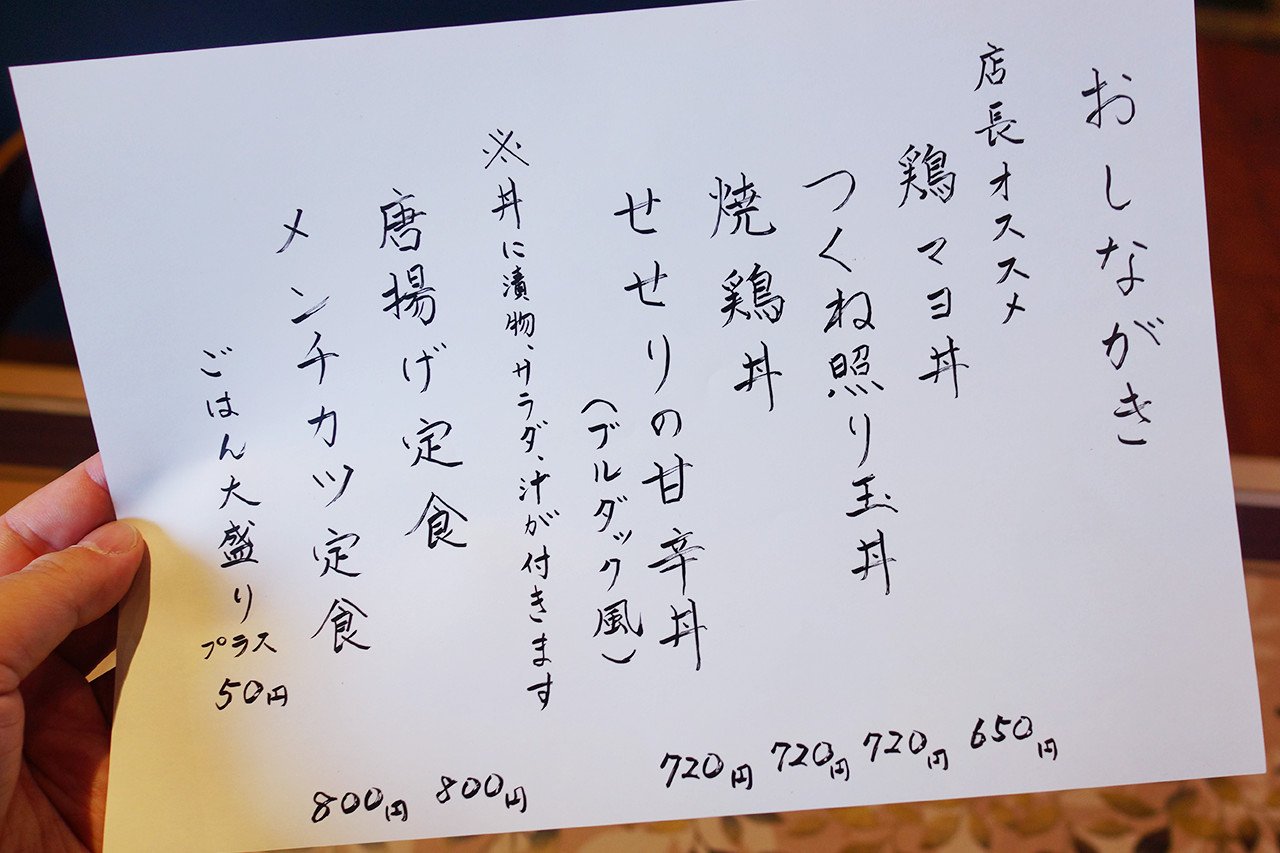 おしながき
店長オススメ
鶏マヨ丼 650円
つくね照り玉丼 720円
焼鶏丼 720円
せせりの甘辛丼 720円
(ブルダック風)
※丼に漬物、サラダ、汁が付きます
唐揚げ定食 800円
メンチカツ定食 800円
ごはん大盛り
プラス
50円